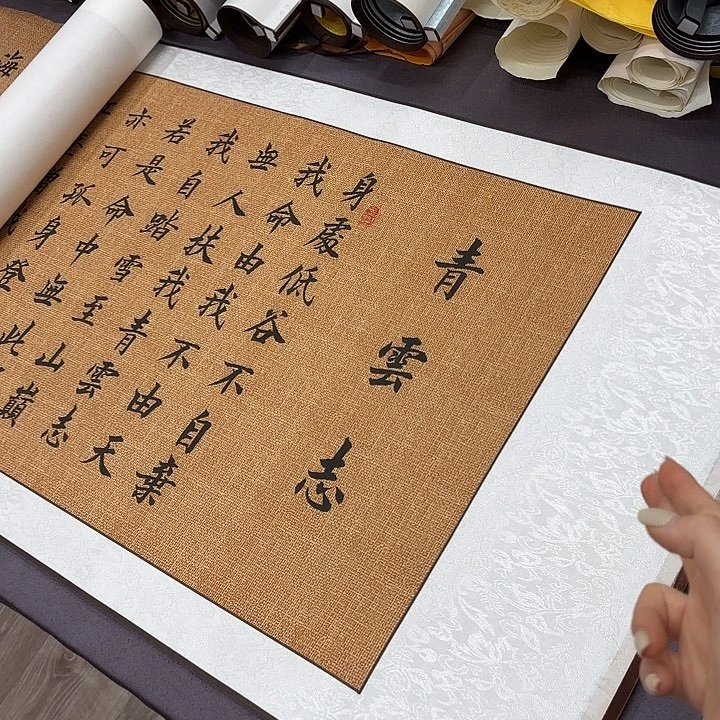 青雲志
身處低谷不自棄
我命由我不由天
無人扶我青雲志
我自踏雪至山巔
若是命中無此
亦可孤身登
海